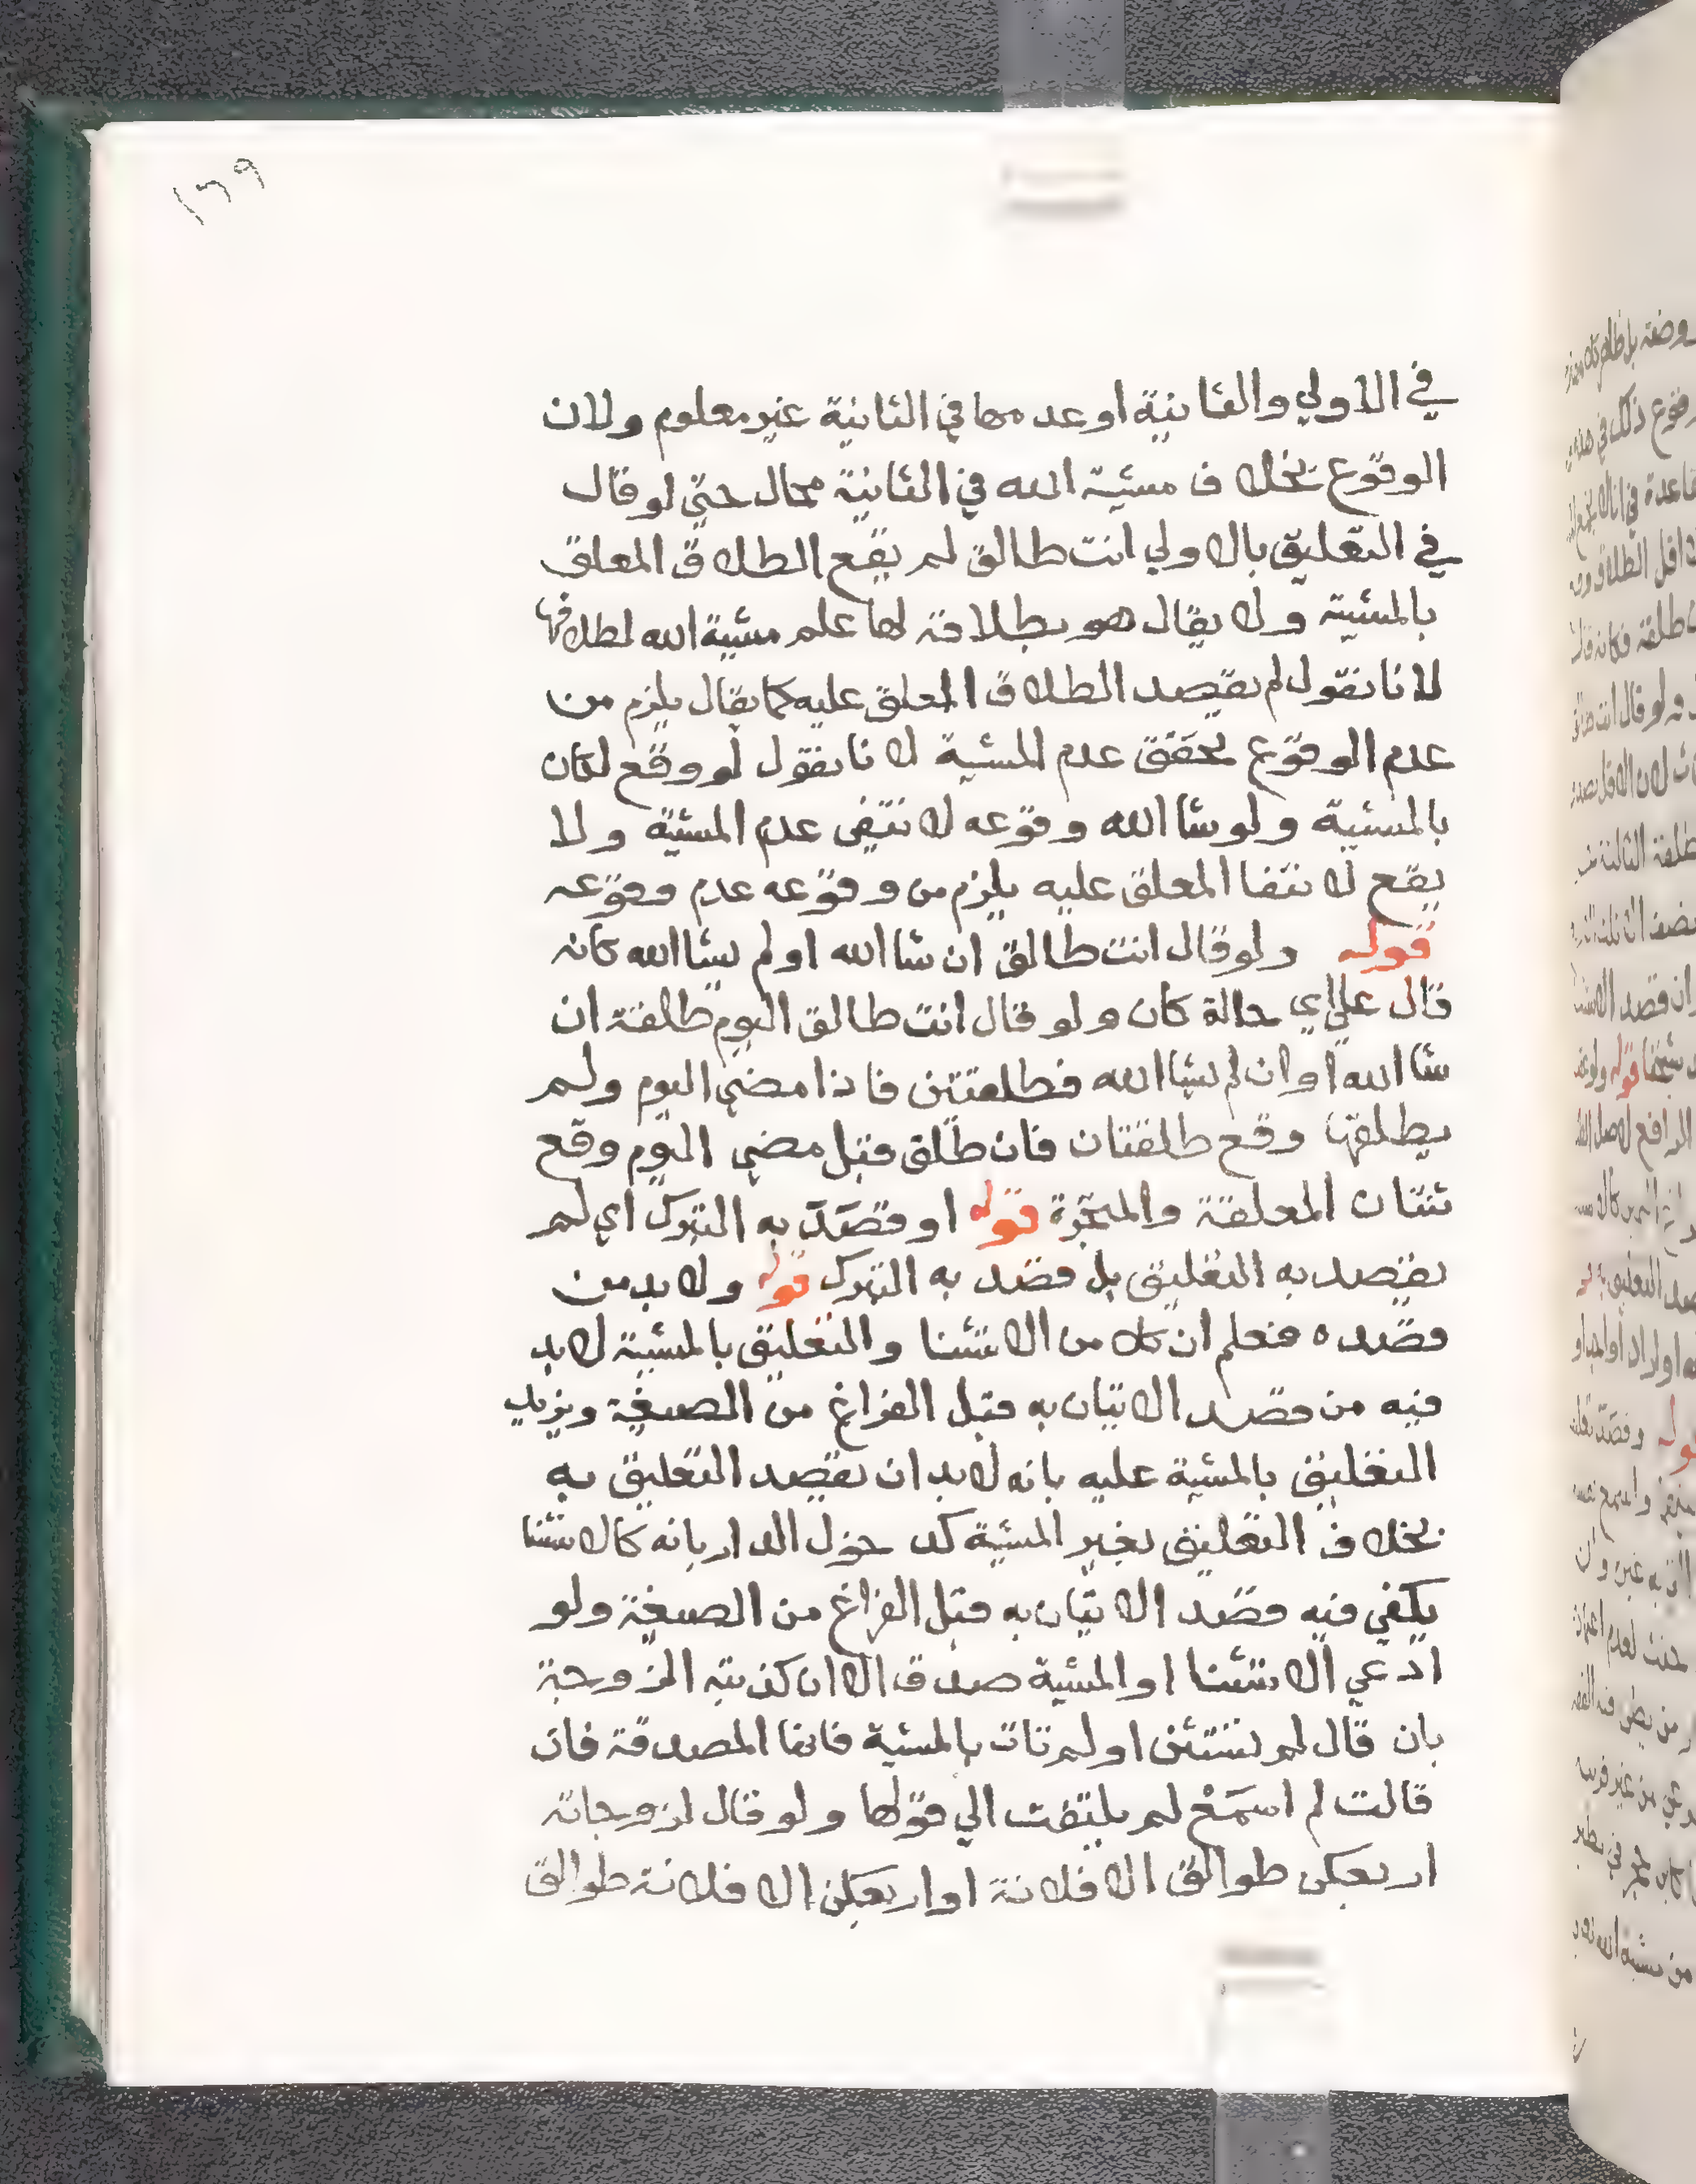 ١٦٩
في الاولي والثانية او عدمها في الثانية غير معلوم ولان
الوقوع بخلاف مشية الله في الثانية محال حتي لو قال
في التعليق بالاولي انت طالق لم يقع الطلاق المعلق
بالمشية ولا يقال هو بطلاقه لها علم مشية الله لطلاقها
لانا نقول لم يقصد الطلاق المعلق عليه كما يقال يلزم من
عدم الوقوع تحقق عدم المشية لانا نقول لو وقع لكان
بالمشية ولو شا الله وقوعه لانتفي عدم المشية ولا
يقع لانتفا المعلق عليه يلزم من وقوعه عدم وقوعه
قوله ولو قال انت طالق ان شا الله او لم يشا الله كانه
قال علي اي حالة كان ولو قال انت طالق اليوم طلقة ان
شا الله او ان لم يشا الله فطلقتين فاذا مضي اليوم ولم
يطلقها وقع طلقتان فان طلق قبل مضي اليوم وقع
ثنتان المعلقة والمنجزة قوله او قصد به التبرك اي لم
يقصد به التعليق بل قصد به التبرك قوله ولا بد من
قصده فنعلم ان كلا من الاستثنا والتعليق بالمشية لا بد
فيه من قصد الاتيان به قبل الفراغ من الصيغة ويزيد
التعليق بالمشية عليه بانه لا بد ان يقصد التعليق به
بخلاف التعليق بغير المشية كدخول الدار بانه كالاستثنا
يكفي فيه قصد الاتيان به قبل الفراغ من الصيغة ولو
ادعي الاستثنا او المشية صدق الا ان كذبته الزوجة
بان قال لم تستثن او لم تات بالمشية فانها المصدقة فان
قالت لم اسمع لم يلتفت الي قولها ولو قال لزوجاته
اربعكن طوالق الا فلانة او اربعكن الا فلانة طوالق